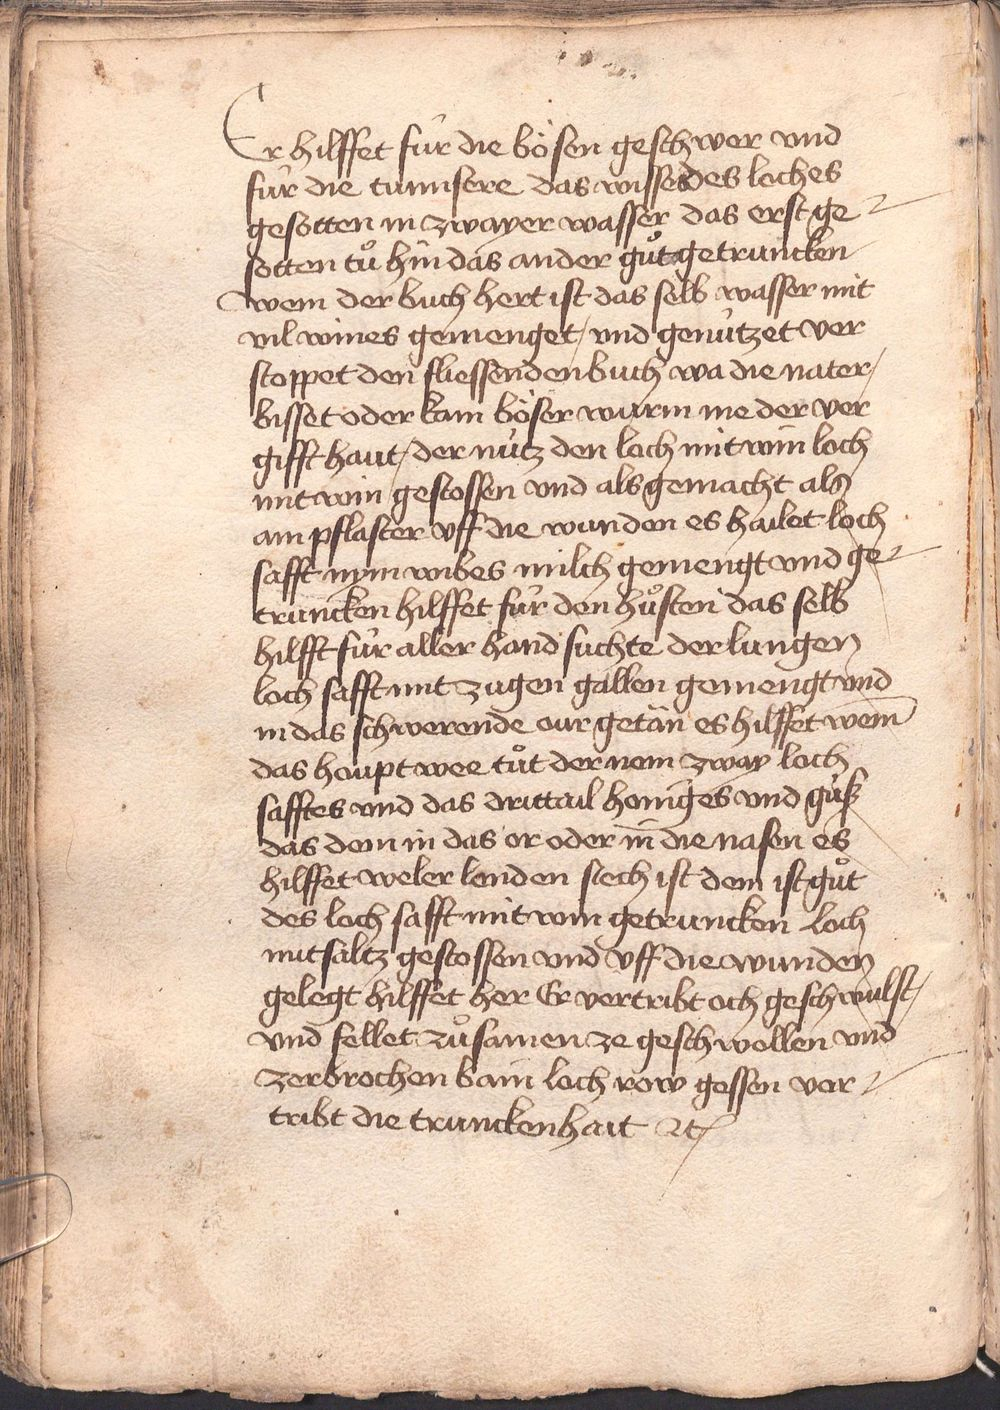 Er hilffet fúr die bösen geschwer vnd
fúr die tunnsere das wisse des loches
gesotten in zwayer wasser das erst ge
sotten tuͦ hin das ander guͦt getruncken
wem der buch hert ist das selb wasser mit
vil wines gemenget / vnd genútzet ver
stoppet den fliessenden buch wa die nater /
bisset oder kain böser wurm me der ver
gifft haut / der nútz den loch mit win loch
mit win gestossen vnd als gemacht als
ain pflaster vff die wunden es hailet loch
safft nym wibes milch gemengt vnd ge
truncken hilffet fúr den huͦsten das selb
hilfft fúr aller hand suchte der lungen
loch safft mit zigen gallen gemengt vnd
in das schwerende our getän es hilffet wem
das houpt wee tuͦt der nem zway loch
safftes vnd das drittail honiges vnd gúß
das dem in das or oder in die nasen es
hilffet weler lenden siech ist dem ist guͦt
des loch safft mit win getruncken Loch
mit saltz gestossen vnd vff die wunden
gelegt hilffet her Er vertribt och geschwulst /
vnd fellet zuͦsamen ze geschwollen vnd
zerbrochen bain loch row gessen ver
tribt die trunckenhait ⁊c